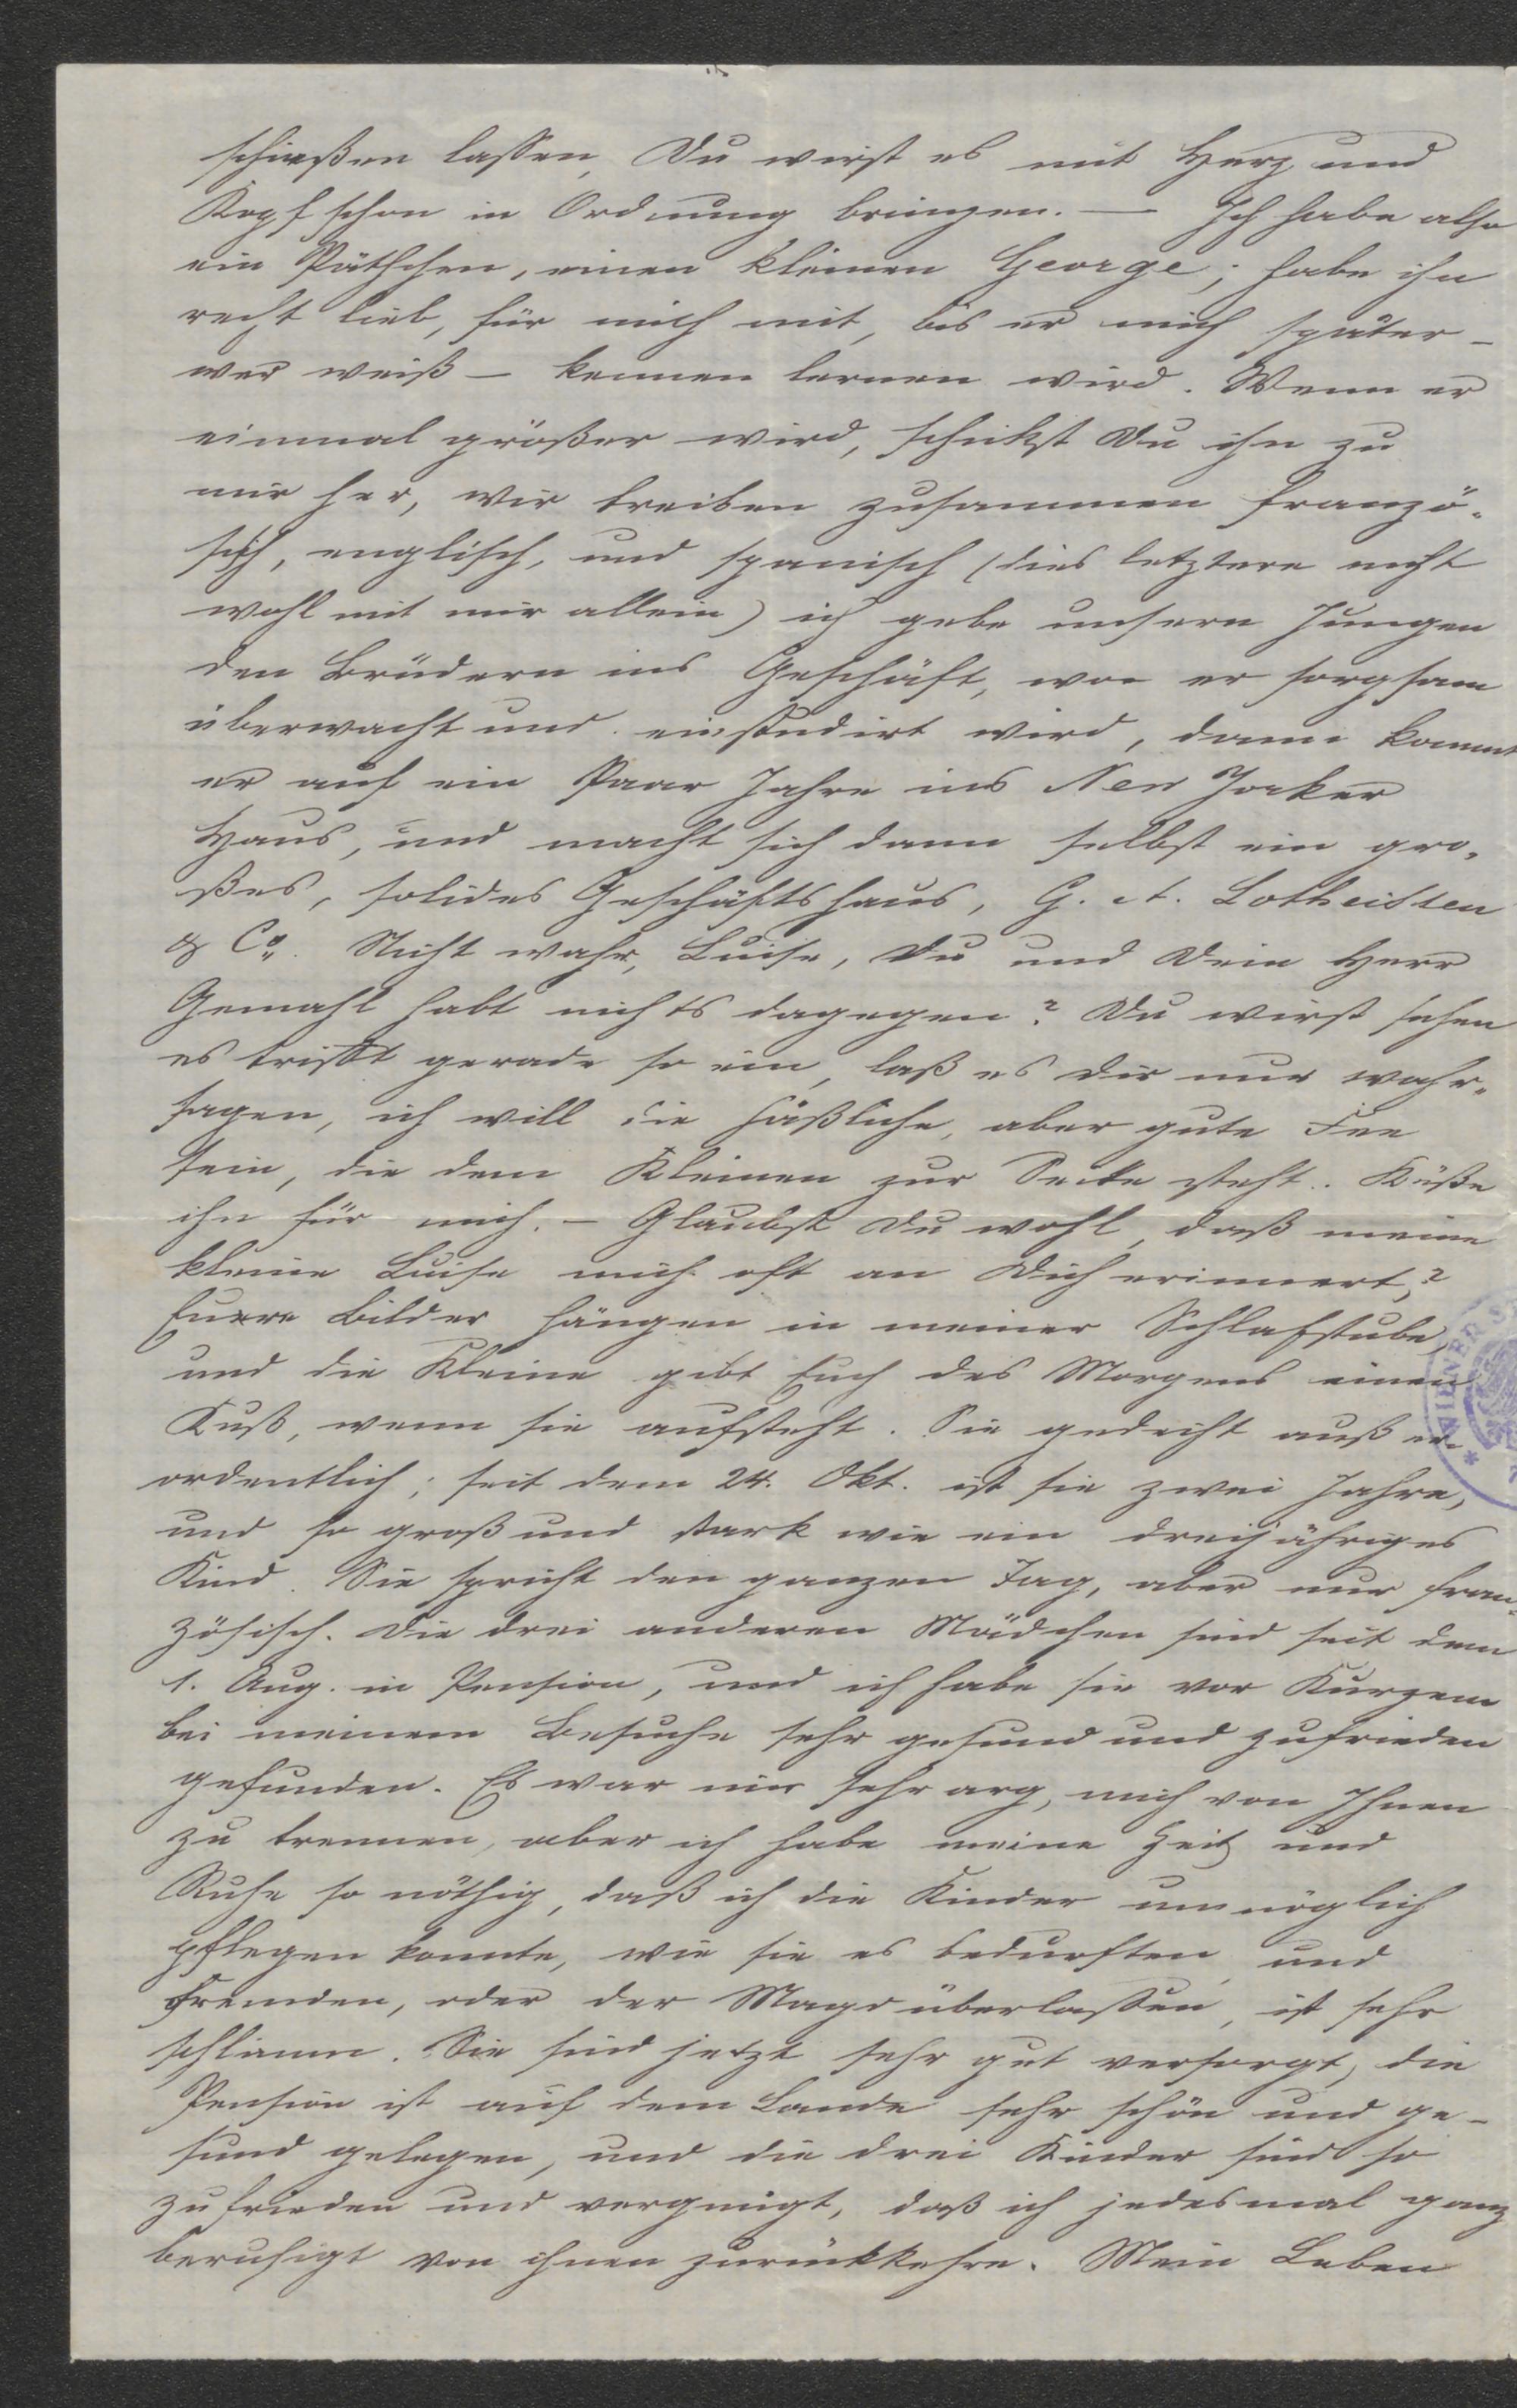 schießen lassen, Du wirst es mit Herz und
Kopf schon in Ordnung bringen. — Ich habe also
ein Päthchen, einen kleinen George; habe ihn
recht lieb, für mich mit, bis er mich später –
wer weiß – kennen lernen wird. Wenn er
einmal größer wird, schickst Du ihn zu
mir her, wir treiben zusammen franzö-
sisch, englisch, und spanisch (dies letztere nicht
wohl mit mir allein) ich gebe unsern Jungen
den Brüdern ins Geschäft, wo er sorgsam
überwacht und einstudirt wird, dann kommt
er auf ein Paar Jahre ins New Yorker
Haus, und macht sich dann selbst ein gro-
ßes, solides Geschäftshaus, G. A. Lotheisten
& Co. Nicht wahr, Luise, Du und Dein Herr
Gemahl habt nichts dagegen? Du wirst sehen
es trifft gerade so ein, laß es Dir nur wahr-
sagen, ich will die häßliche, aber gute Fee
sein, die dem Kleinen zur Seite steht. Küße
ihn für mich. – Glaubst Du wohl, daß meine
kleine Luise mich oft an Dich erinnert,?
Euere Bilder hängen in meiner Schlafstube,
und die Kleine gibt Euch des Morgens einen
Kuß, wenn sie aufsteht. Sie gedeiht außer
ordentlich; seit dem 24. Okt. ist sie zwei Jahre,
und so groß und stark wie ein dreijähriges
Kind. Sie spricht den ganzen Tag, aber nur fran-
zösisch. Die drei anderen Mädchen sind seit dem
1. Aug. in Pension, und ich habe sie vor Kurzem
bei meinem Besuche sehr gesund und zufrieden
gefunden. Es war mir sehr arg, mich von Ihnen
zu trennen, aber ich habe meine Zeit und
Ruhe so nöthig, daß ich die Kinder unmöglich
pflegen konnte, wie sie es bedurften, und
Fremden, oder der Magd überlassen, ist sehr
schlimm. Sie sind jetzt sehr gut versorgt, die
Pension ist auf dem Lande sehr schön und ge-
sund gelegen, und die drei Kinder sind so
zufrieden und vergnügt, daß ich jedesmal ganz
beruhigt von ihnen zurückkehre. Mein Leben
WIENER